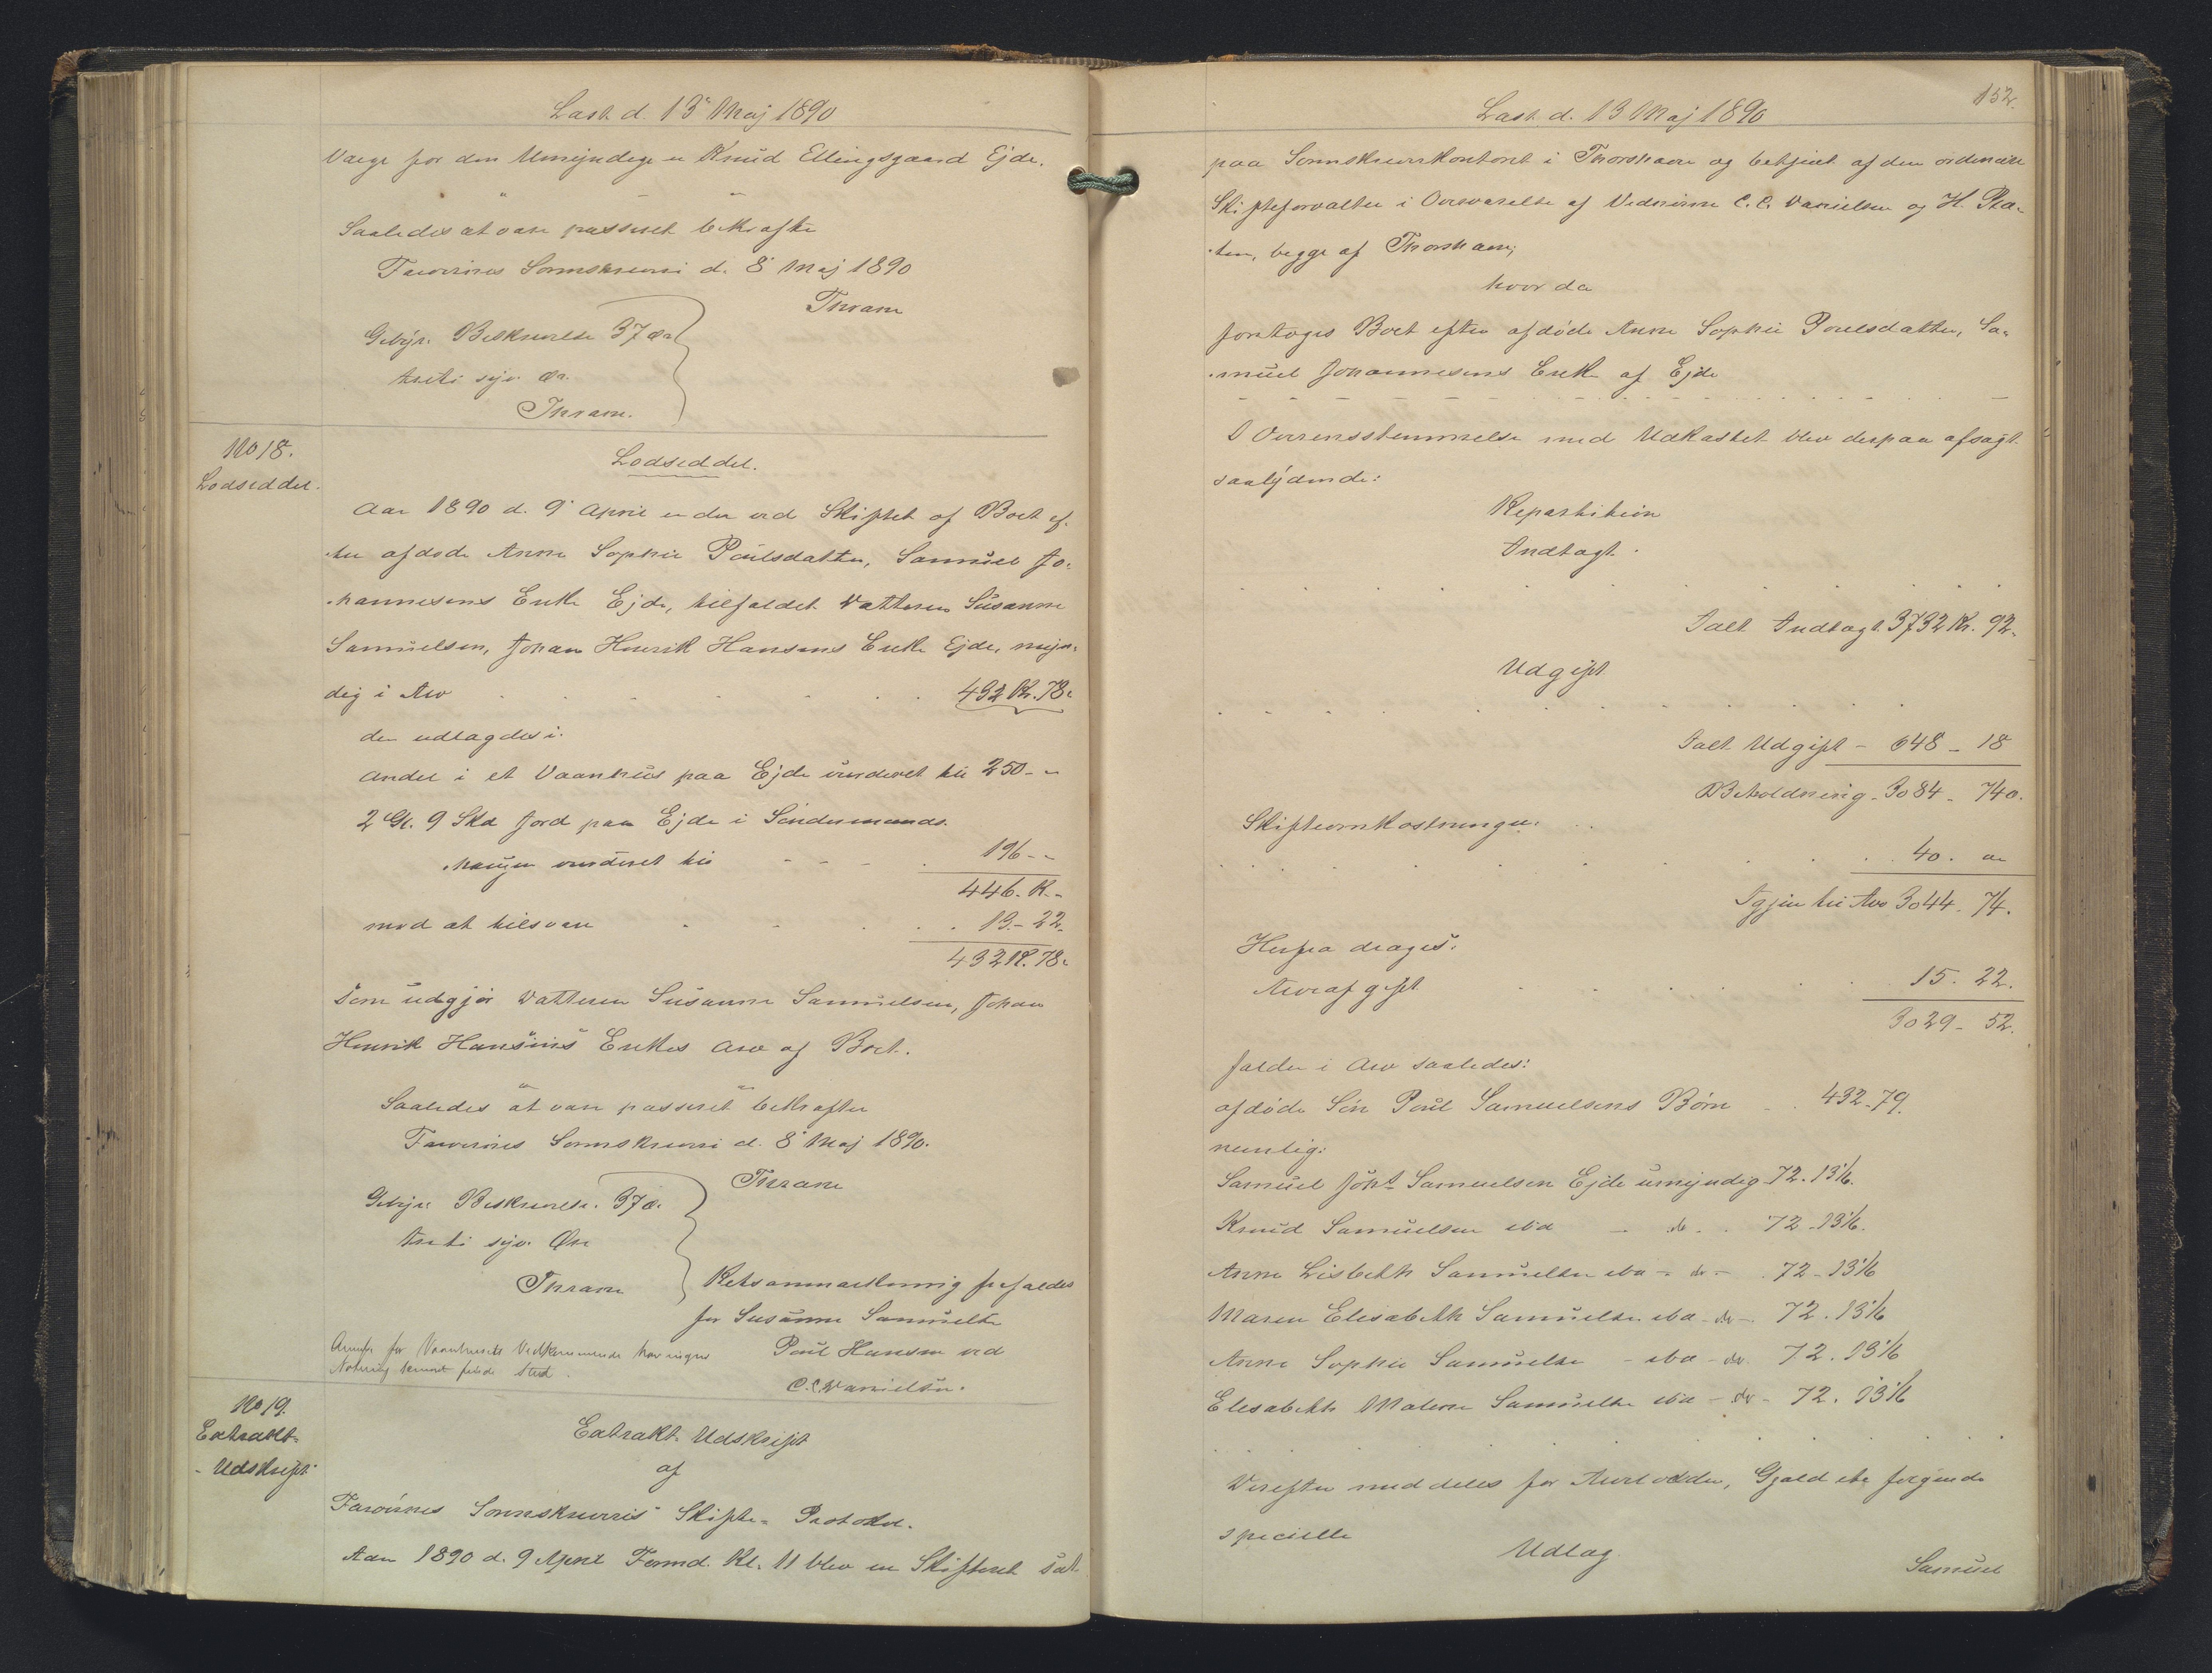 Læst d. 13' Maj 1890
Værge for den Umyndige er Knud Ellingsgaard Ejde.
Saaledes at være passeret bekræfter
Færøernes Sorenskriveri d. 8' Maj 1890
Thrane
Gebyr. Beskrivelse 37 Ør
treti syv Ør.
Thrane.
No 18.
Lodseddel.
Lodseddel.
Aar 1890 d. 9' April er der ved Skiftet af Boet ef-
ter afdøde Anne Sophie Poulsdatter, Samuel Jo-
hannesens Enke Ejde, tilfaldet Datteren Susanne
Samuelsen, Johan Henrik Hansens Enke Ejde, myn-
dig i Arv 432 Kr. 78.
der udlagdes i:
Andel i et Vaanhus paa Ejde vurderet til 250 - -
2 Gl. 9 Skd Jord paa Ejde i Sindumunds-
haugen vurderet til 196 - -
446. K. -
mod at tilsvare 13 - 22.
432 K. 78.
Som udgjør Datteren Susanne Samuelsen, Johan
Henrik Hansens Enkes Arv af Boet.
Saaledes at være passeret bekræfter
Færøernes Sorenskriveri d. 8' Maj 1890.
Thrane
Gebyr Beskrivelse. 37 Ø.
treti syv Øre
Thrane
Retsanmærkning frafaldes
for Susanne Samuelsen
Poul Hansen ved
C. C. Danielsen.
Anmfr for Vaanhusets Vedkommende har ingen
Notering kunnet finde Sted.
No 19.
Extrakt-
- Udskrift
Extrakt-Udskrift
af
Færøernes Sorenskriveris Skifte-Protokol.
Aar 1890 d. 9 April Formd. Kl. 11 blev en Skifteret sat
152.
Læst d. 13 Maj 1890
paa Sorenskriverkontoret i Thorshavn og betjent af den ordinære
Skifteforvalter i Overværelse af Vidnerne C. C. Danielsen og H. Pla-
ten, begge af Thorshavn;
hvor da
foretoges Boet efter afdøde Anne Sophie Poulsdatter, Sa-
muel Johannesens Enke af Ejde
I Overensstemmelse med Udkastet blev derpaa afsagt
saalydende:
Repartition
Indtægt.
Ialt Indtægt. 3732 Kr. 92.
Udgift
Ialt Udgift - 648 - 18
Beholdning - 3084 - 74 ø.
Skifteomkostninger:
40. -
Igjen til Arv 3044. 74.
Herfra drages:
Arveafgift 15. 22.
3029 - 52.
falder i Arv saaledes:
afdøde Søn Poul Samuelsens Børn 432. 79.
nemlig:
Samuel Johs Samuelsen Ejde umyndig 72. 13 1/6.
Knud Samuelsen ibd - do - 72. 13 1/6.
Anne Lisbeth Samuelsen ibd - do - 72. 13 1/6
Maren Elisabeth Samuelsen ibd - do - 72. 13 1/6
Anne Sophie Samuelsen - ibd - do 72. 13 1/6
Elisabeth Malene Samuelsen ibd - do - 72. 13 1/6
Derefter meddeles for Arvelodder, Gjæld etc følgende
specielle
Udlæg
Samuel